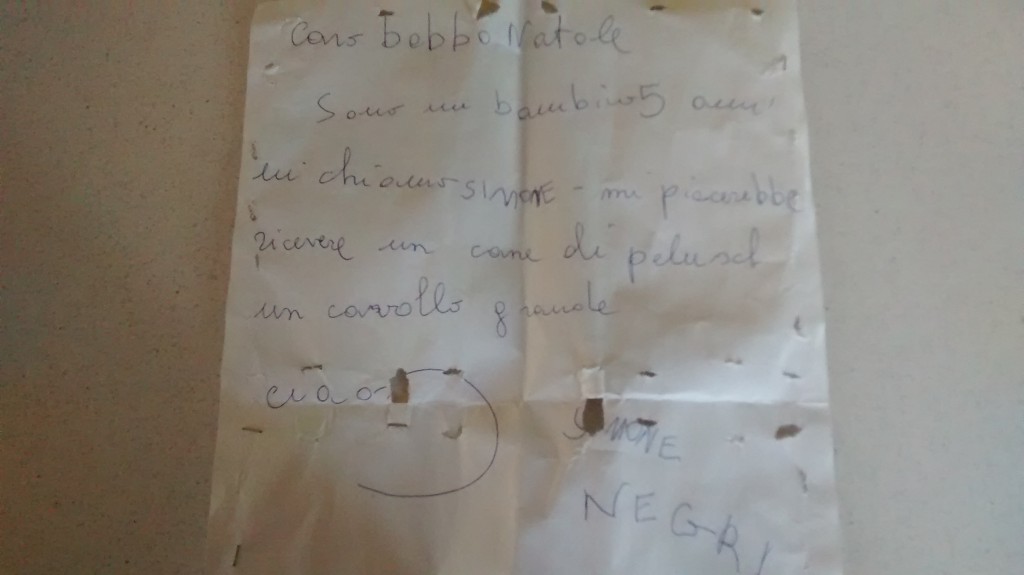 Caro babbo Natale
Sono un bambino 5 anni
mi chiamo SIMONE - mi piacerebbe
ricevere un cane di pelusch
un cavallo grande
ciao
SIMONE
NEGRI